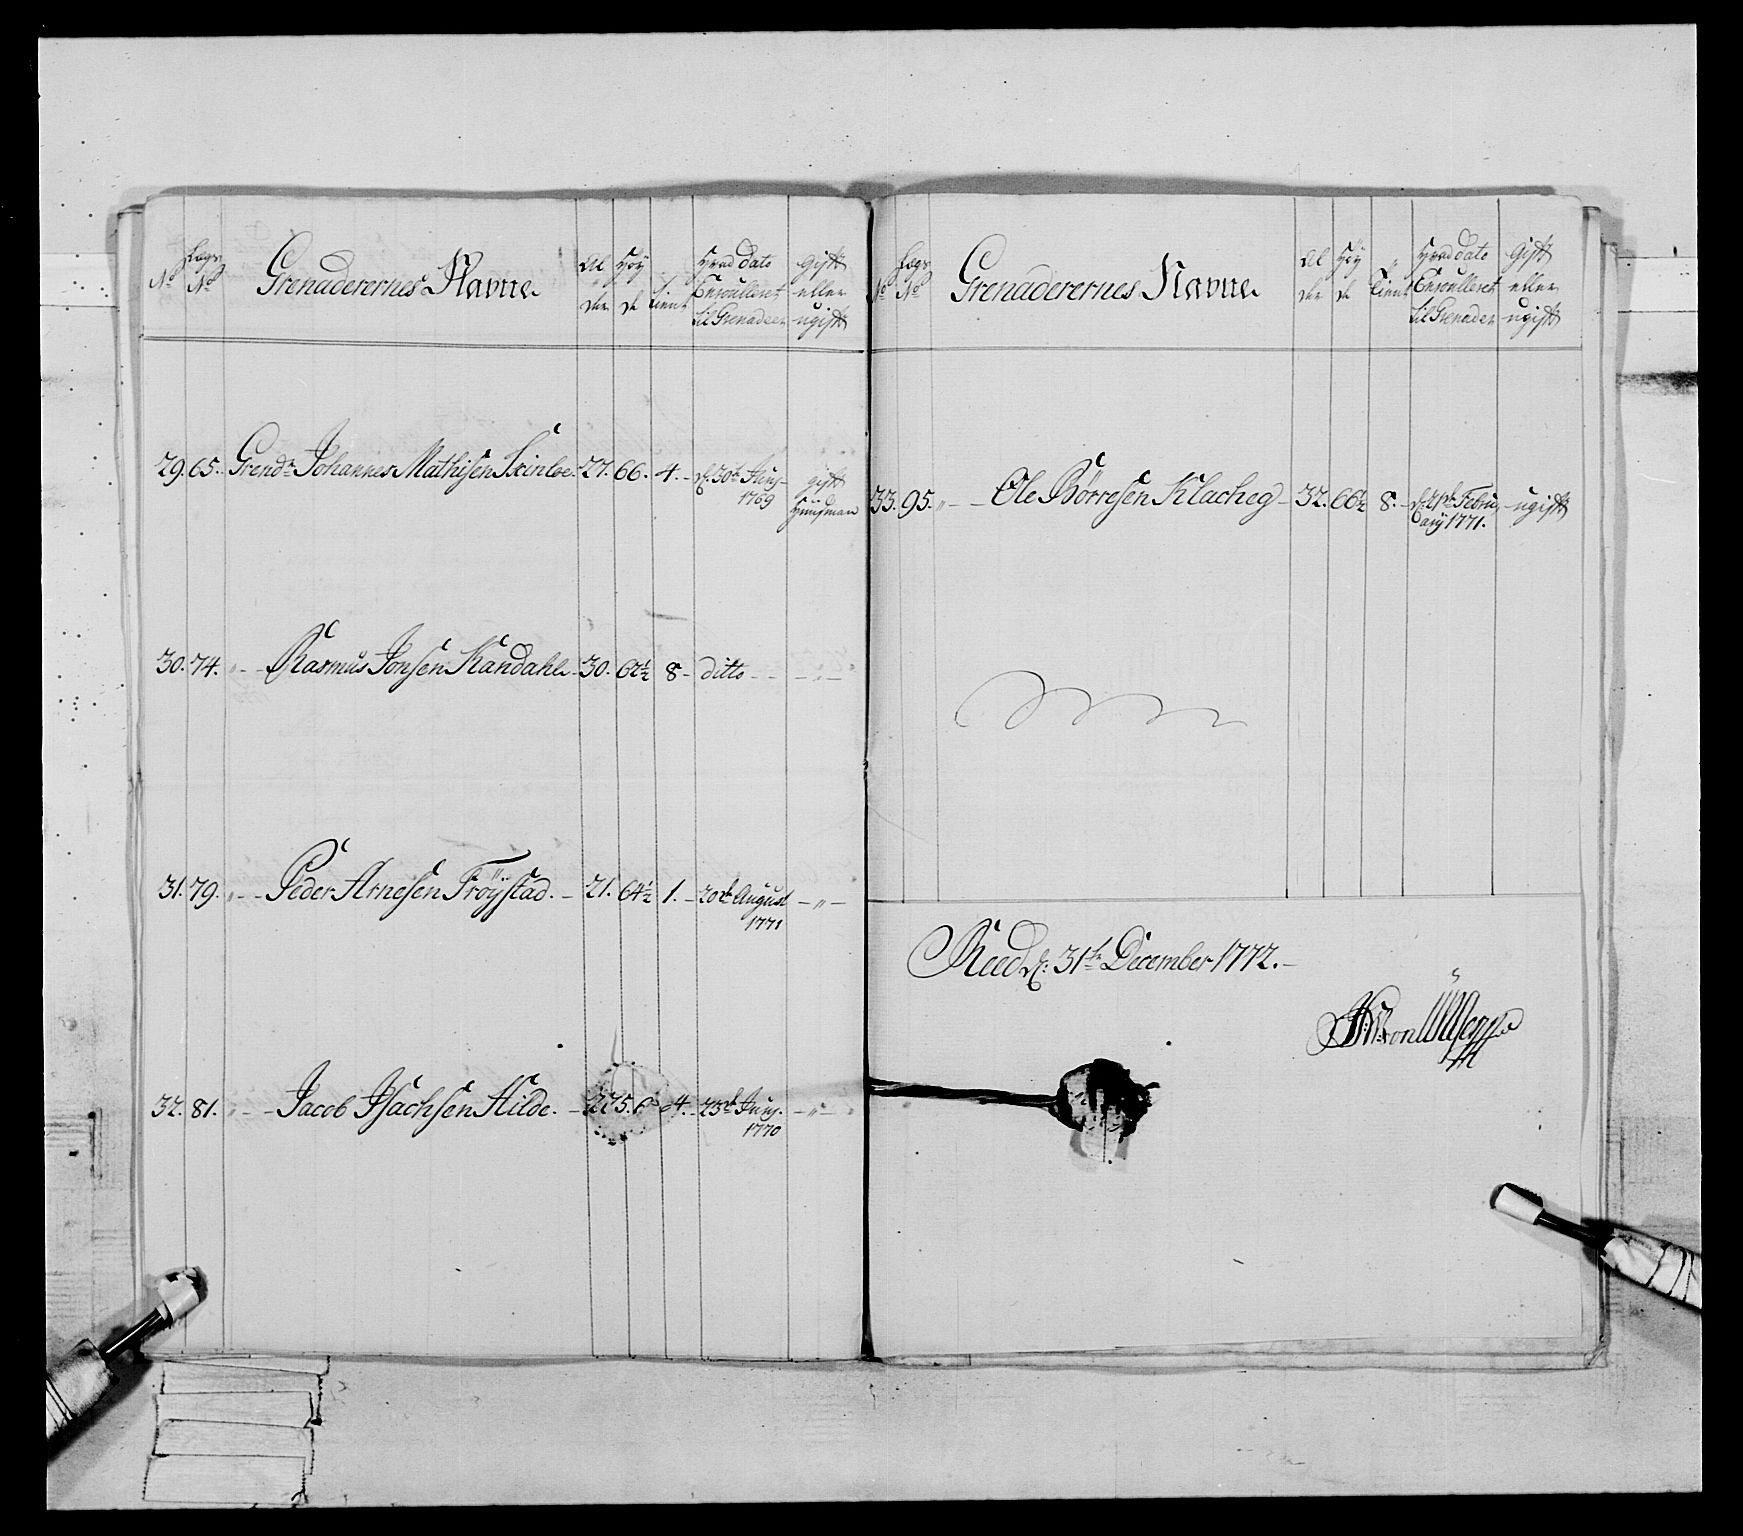 No Lægs No Grenaderernes Navne Al der Höy de Tient Hvad dato Enroulleret til Grenadeer gift eller ugift
29. 65. Grendr. Johannes Mathisen Skinloe 27. 66. 4. d: 30te Junj 1769 gift Huusman
30. 74. " Rasmus Jonsen Kandahl 30. 62½ 8 ditto "
31. 79. " Peder Arnesen Fröystad. 21. 64½ 1. 20de August 1771 "
32. 81. " Jacob Isachsen Hilde. 4. 23de Junj. 1770 "
No Lægs No Grenaderernes Navne Al der Höy de Tient Hvad dato Enroulleret til Grenadeer gift eller ugift
33. 95. " Ole Börresen Klacheg 32. 66½ 8. d: 21de Febru ary 1771. ugift
Reed d: 31te December 1772.